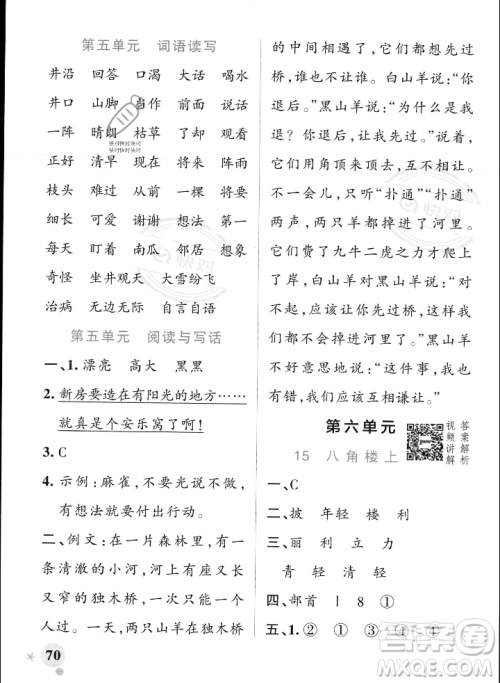 第五单元 词语读写
井沿 回答 口渴 大话 喝水
井口 山脚 当作 前面 说话
一阵 晴朗 枯草 了却 观看
正好 清早 现在 将来 阵雨
枝头 难过 从前 一棵 将要
细长 可爱 谢谢 想法 生气
每天 盯着 南瓜 邻居 想象
奇怪 坐井观天 大雪纷飞
治病 无边无际 自言自语
第五单元 阅读与写话
一、1.漂亮 高大 黑黑
2.新房要造在有阳光的地方……
就真是个安乐窝了!
3.C
4.示例:麻雀,不要光说不做,
有想法就要付出行动。
二、例文:在一片森林里,有一
条清澈的小河,河上有座又长
又窄的独木桥,独木桥只能一
个人过。一天,两只山羊在独木桥
70
的中间相遇了,它们都想先过
桥,谁也不让谁。白山羊说:“你
退后。”黑山羊说:“为什么是我
退?你退后,让我先过。”说完,它
们用角顶来顶去,互不相让。不
一会儿,只听“扑通”“扑通”
两声,两只羊都掉进了河里。
它们费了九牛二虎之力才爬上了
岸。白山羊对黑山羊说:“对不
起,应该让你先过桥,如果我们
都不想着先过桥,我们就不会
掉进河里,弄得一身湿。”黑山羊
不好意思地说:“没关系,如果再
有下次,我们应该互相谦让。”
第六单元
视频讲解
答案解析
15 八角楼上
一、C
二、披 年轻 楼 利
三、丽 利 立 力
青 轻 清 轻
四、部首 丨 8 ①
五、1.② ① ④ ④